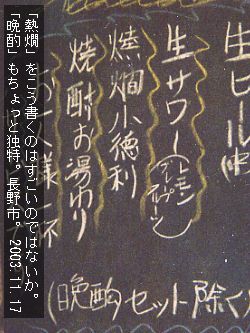 生ビール(中
生サワー(レモン
燗小徳利
焼酎お湯わり
一人様一杯
(晩酌セット除く
「熱燗」をこう書くのはすごいのではないか。
「晩酌」もちょっと独特。長野市。2003.11.17